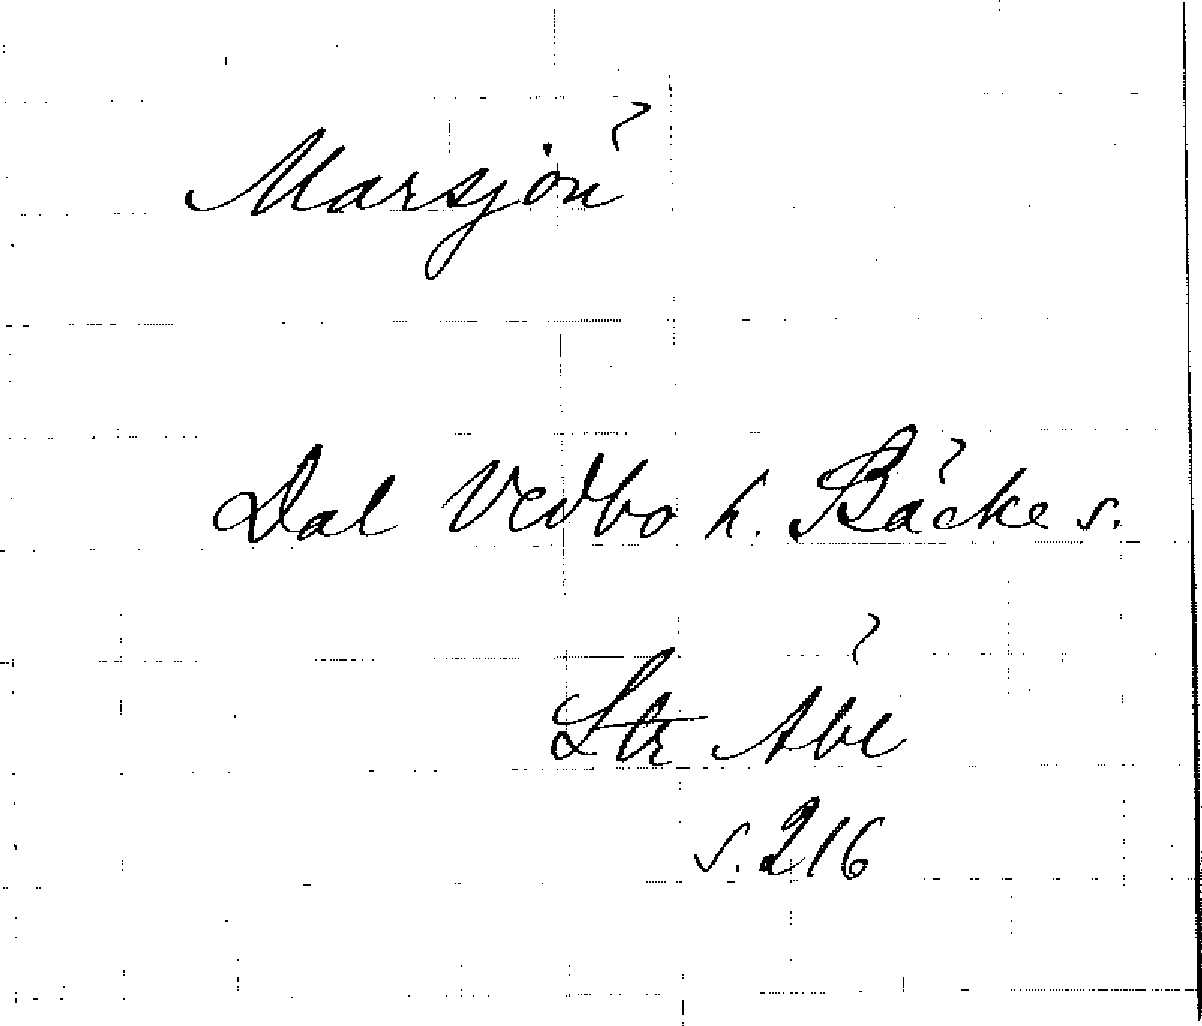 Marsjön
Dal Vedbo h. Bäcke s.
Str Äbl
s. 216